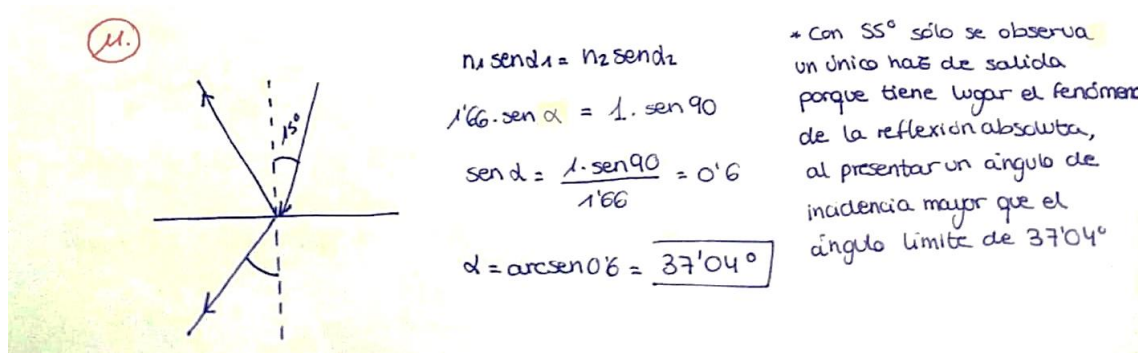 11.
15°
n₁ send₁ = n₂ send₂
1'66 · sen α = 1 · sen 90
sen α = 1 · sen 90 / 1'66 = 0'6
α = arcsen 0'6 = 37'04°
* Con 55° sólo se observa
un único haz de salida
porque tiene lugar el fenómen
de la reflexión absoluta,
al presentar un ángulo de
incidencia mayor que el
ángulo límite de 37'04°